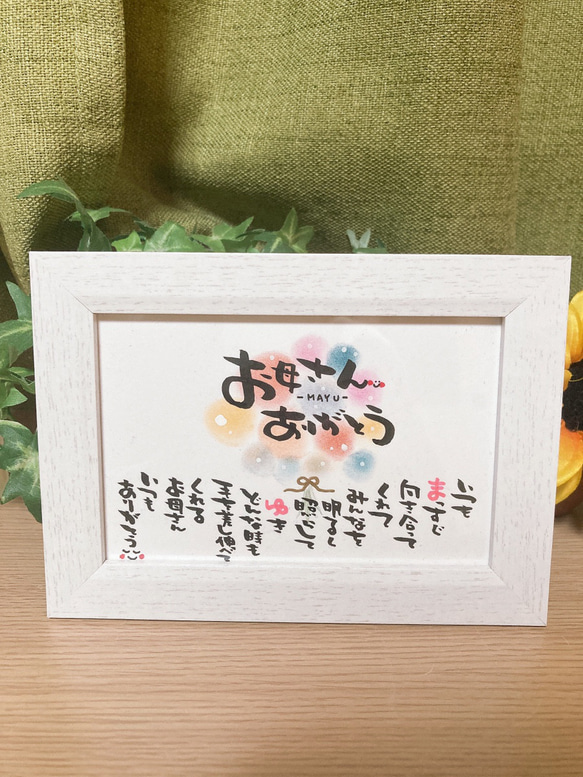 お母さん
-MAYU-
ありがとう
いつも
まっすぐ
向き合って
くれて
みんなを
明るく
照らして
ゆき
どんな時も
手を差し伸べて
くれる
お母さん
いつも
ありがとう